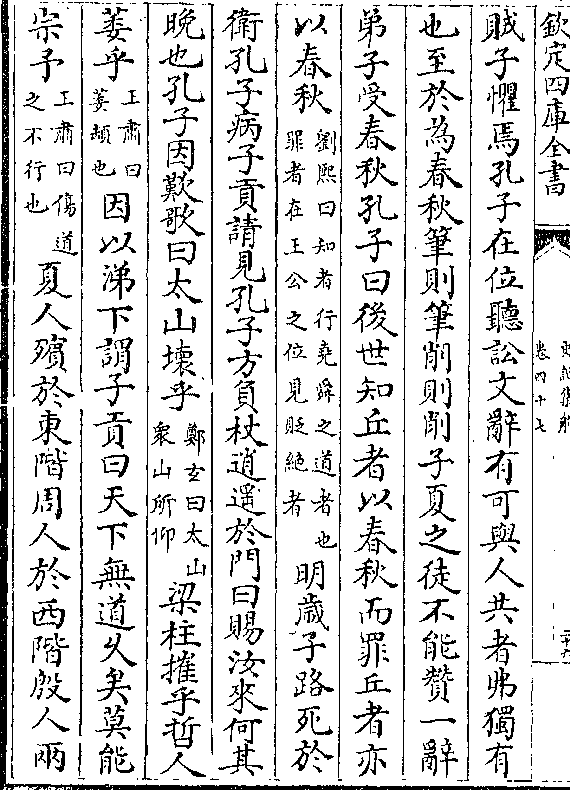 欽定四庫全書
史記集解
卷四十七
賊子懼焉孔子在位聽訟文辭有可與人共者弗獨有
也至於為春秋筆則筆削則削子夏之徒不能贊一辭
弟子受春秋孔子曰後世知丘者以春秋而罪丘者亦
以春秋劉熙曰知者行堯舜之道者也罪者在王公之位見貶絕者明歲子路死於
衛孔子病子貢請見孔子方負杖逍遥於門曰賜汝來何其
晚也孔子因歎歌曰太山壞乎鄭玄曰太山衆山所仰梁柱摧乎哲人
萎乎王肅曰萎頓也因以涕下謂子貢曰天下無道久矣莫能
宗予王肅曰傷道之不行也夏人殯於東階周人於西階殷人兩